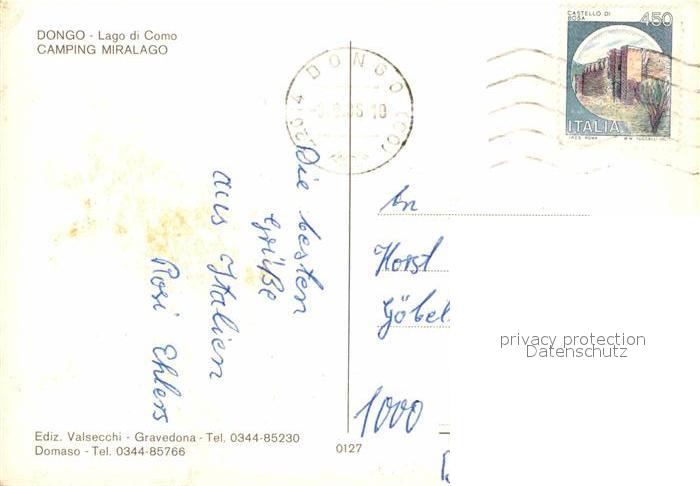 DONGO - Lago di Como
CAMPING MIRALAGO
CASTELLO DI
BOSA
450
ITALIA
DONGO (CO)
Die besten
Grüße
aus Italien
Rosi Ehlers
An
Horst
Göbel
1000
privacy protection
Datenschutz
Ediz. Valsecchi - Gravedona - Tel. 0344-85230
Domaso - Tel. 0344-85766
0127